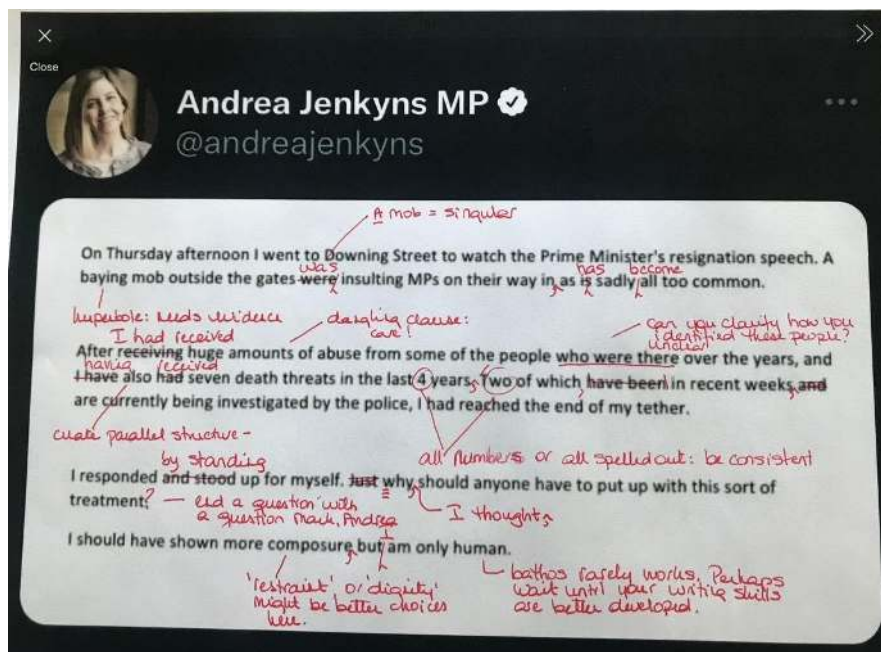 Close
Andrea Jenkyns MP
@andreajenkyns
A mob = singular
On Thursday afternoon I went to Downing Street to watch the Prime Minister's resignation speech. A
was has become
baying mob outside the gates were insulting MPs on their way in, as is sadly all too common.
hyperbole: needs evidence
dangling clause:
care!
can you clarify how you
identified these people?
unclear
I had received
After receiving huge amounts of abuse from some of the people who were there over the years, and
having received
I have also had seven death threats in the last 4 years, Two of which, have been in recent weeks, and
are currently being investigated by the police, I had reached the end of my tether.
create parallel structure -
all numbers or all spelled out: be consistent
by standing
I responded and stood up for myself. Just why, should anyone have to put up with this sort of
treatment?
— end a question with
a question mark, Andrea
I thought,
I
I should have shown more composure, but am only human.
'restraint' or 'dignity'
might be better choices
here.
bathos rarely works. Perhaps
wait until your writing skills
are better developed.